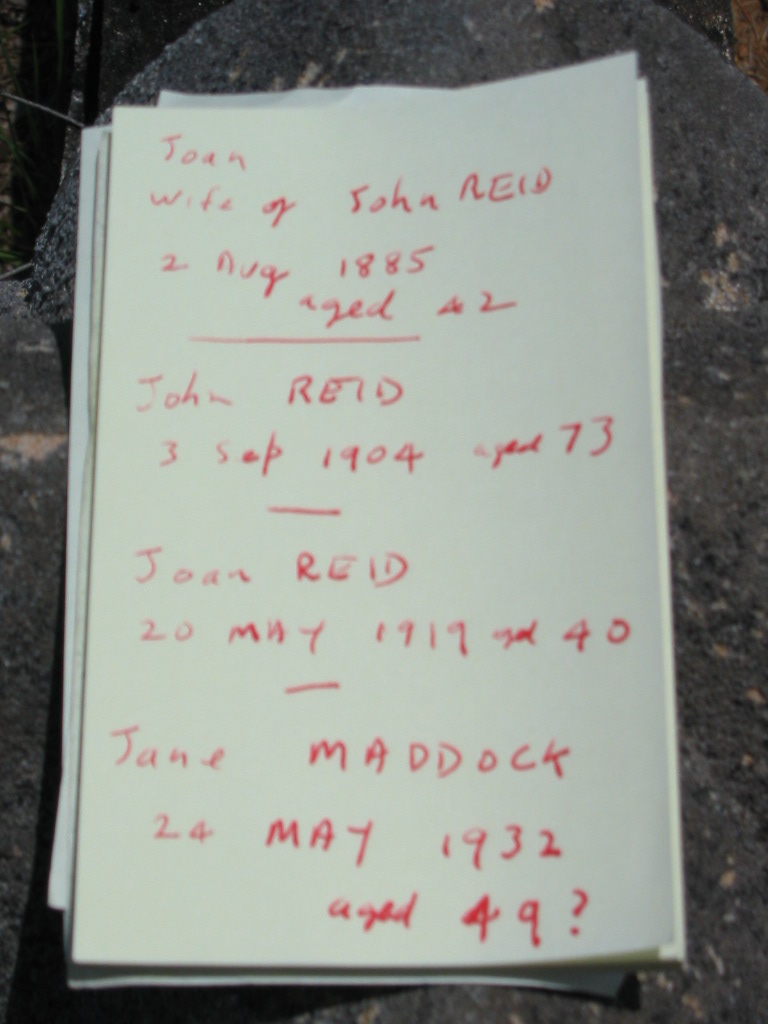 Joan
wife of John REID
2 Aug 1885
aged 42
John REID
3 Sep 1904 aged 73
Joan REID
20 MAY 1919 aged 40
Jane MADDOCK
24 MAY 1932
aged 49?